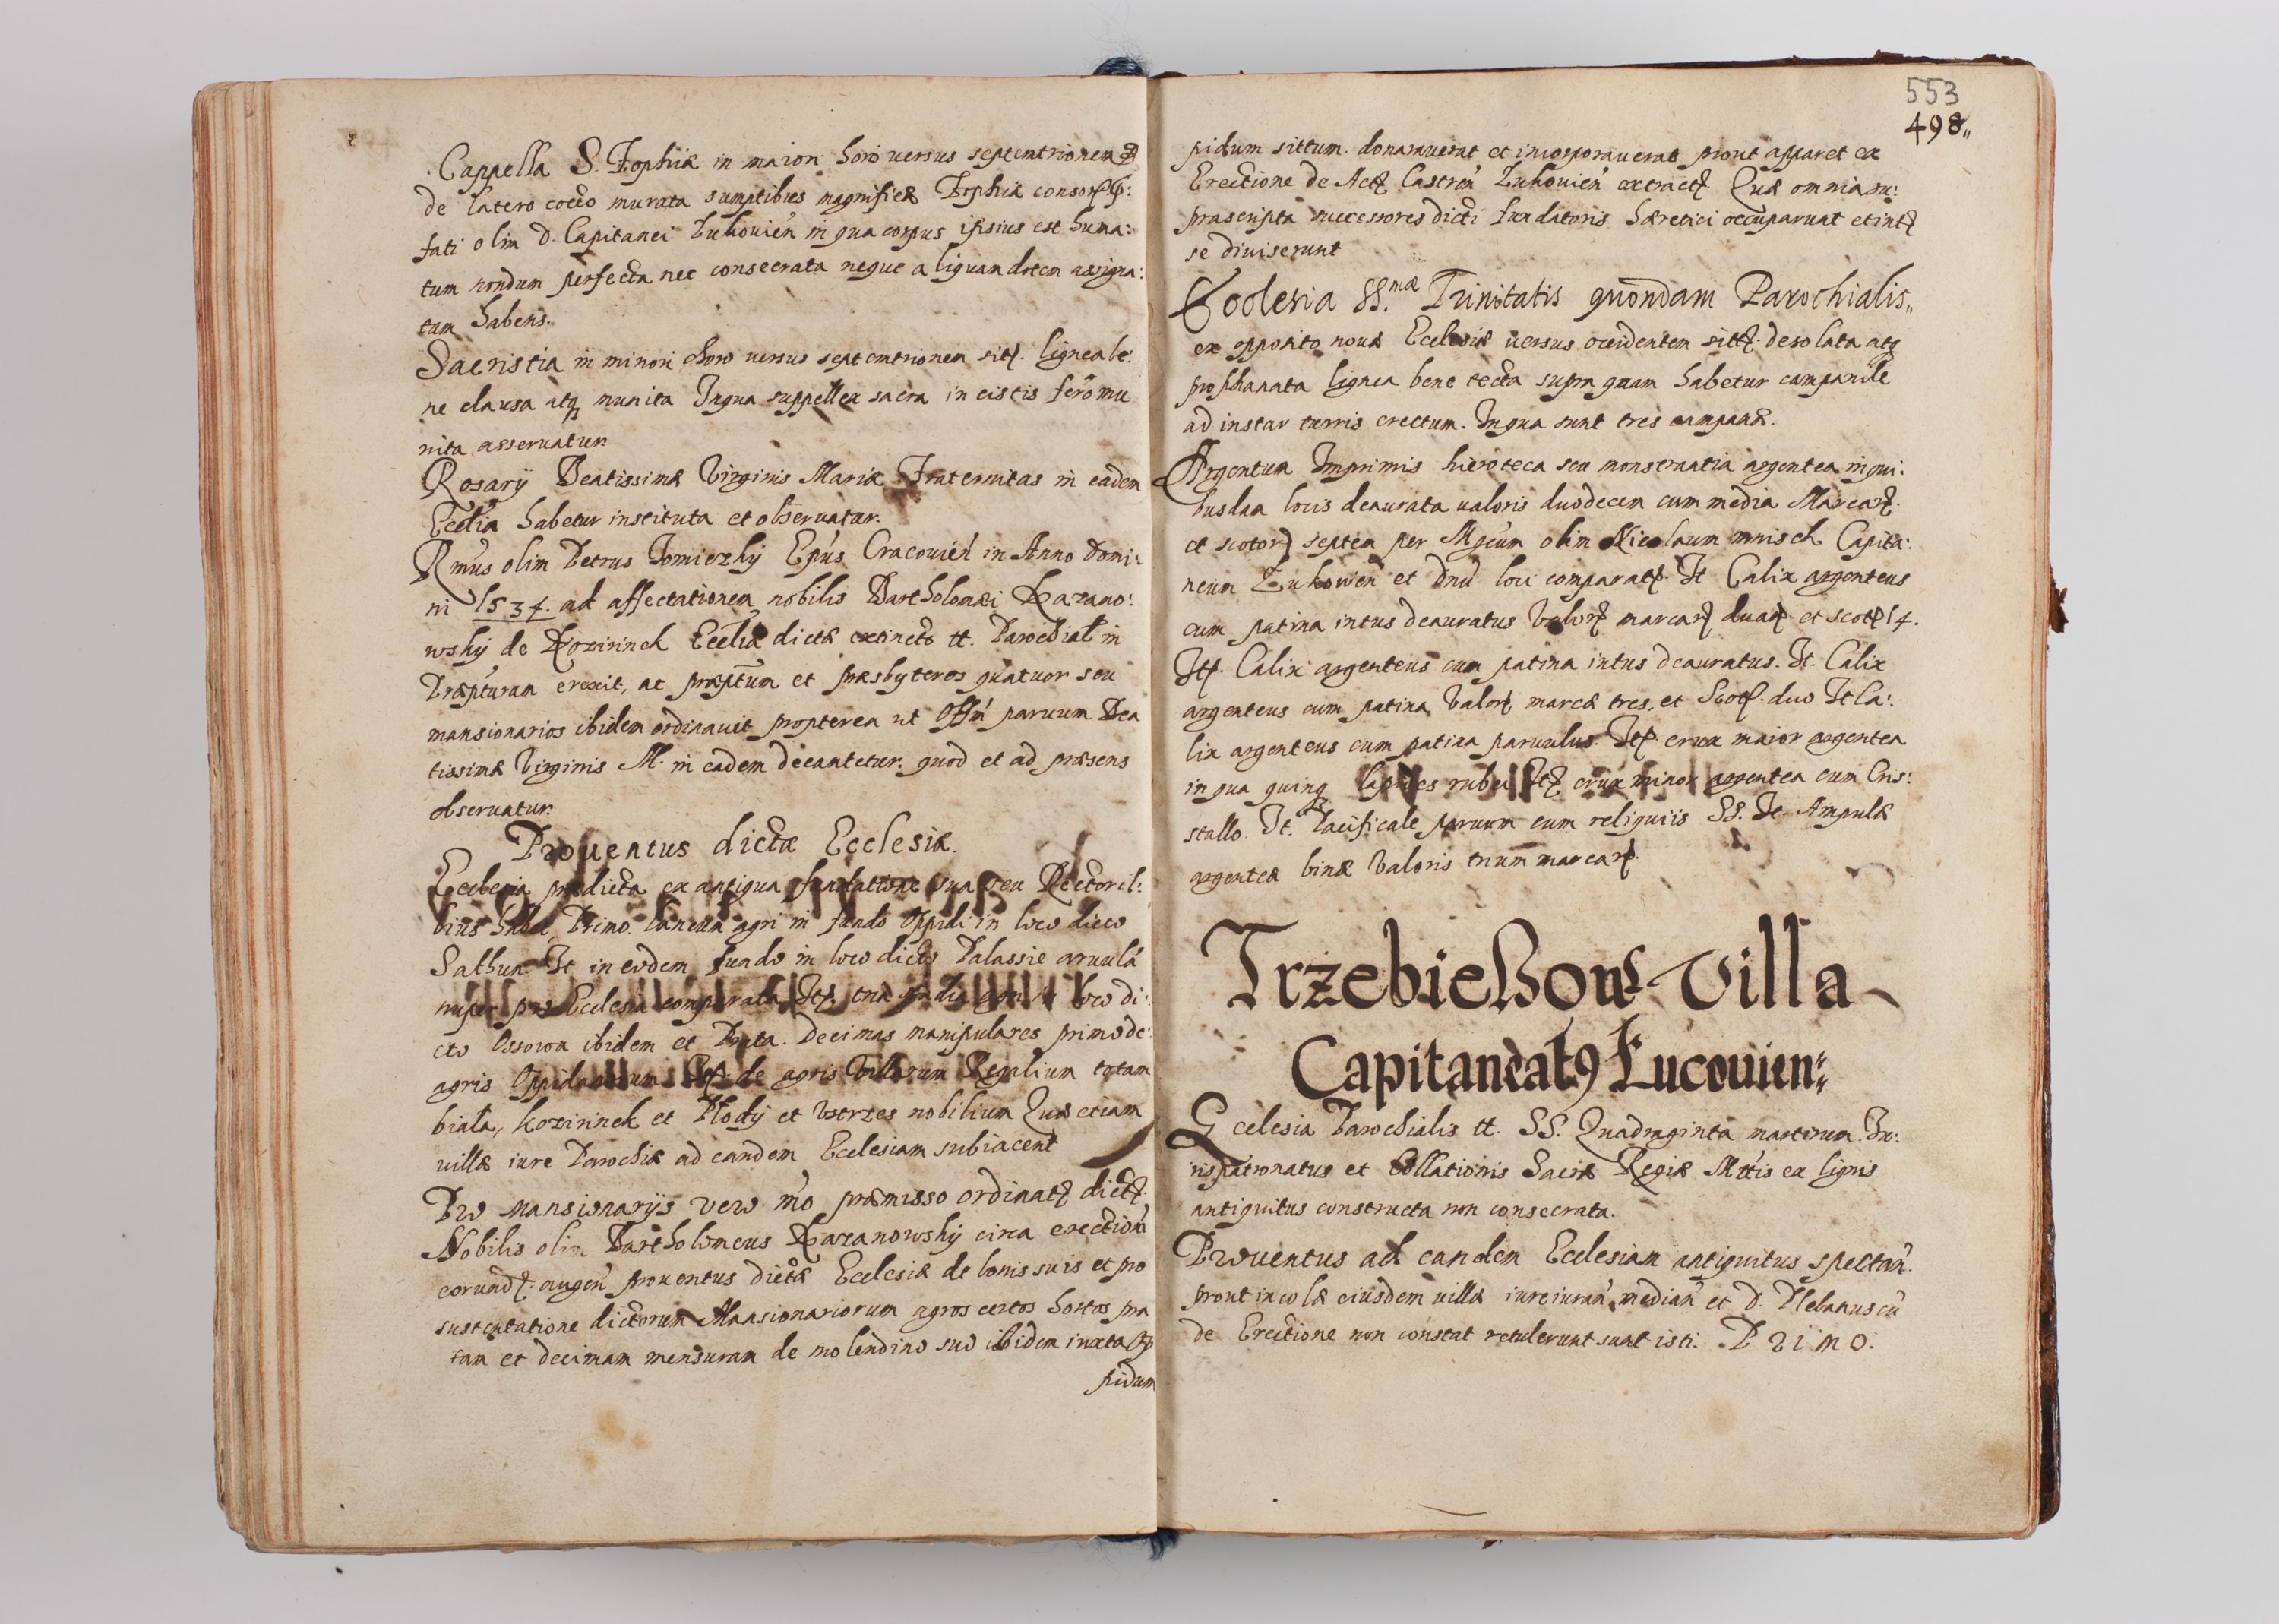 Cappella S. Zophiæ in maiori horo versus septemtrionem
de latere cocto murata sumptibus magnificæ Zophiæ consor:
fati olim d. Capitanei Lukovien in qua corpus ipsius est huma:
tum nondum perfecta nec consecrata neque aliquam dotem assigna:
tam habens.
Sacristia in minori choro uersus septemtrionem sit. lignea be:
ne clausa atq munita In qua suppellex sacra in cistis ferro mu
nita asseruatur.
Rosarij Beatissimæ Virginis Mariæ Fraternitas in eadem
Ecclia habetur instituta et obseruatur.
Rmus olim Petrus Tomiczky Epus Cracovien in Anno Domi:
ni 1534. ad affectationem nobilis Bartholomæi Kazano:
wsky de Kozirinek Eccliæ dictæ extincto tt. Parochiali in
Præpturam erexit, ac præptum et præsbyteros quatuor seu
mansionarios ibidem ordinauit propterea ut Offm paruum Bea
tissimæ Virginis M. in eadem decantetur. quod et ad præsens
obseruatur.
Prouentus dictæ Ecclesiæ.
Ecclesia prædicta ex antiqua fundatione sua seu Rectoril:
bius habet Primo. laneum agri in fundo Oppidi in loco dicto
Sathun. It in eodem fundo in loco dicto Palassie aruulā
nuper pro Ecclesia comparata Itẹ. tria agri in loco di:
cto Ossowa ibidem et Prata. Decimas manipulares primo de
agris Oppidanorum Itẹ de agris Villarum Regalium totam
biała, Kozirinek et Płody et Vstrzes nobilium Quæ etiam
uillæ iure Parochiæ ad eandem Ecclesiam subiacent
Pro mansionarijs vero mo præmisso ordinatẹ dictẹ.
Nobilis olim Bartholomeus Kazanowsky circa erection
eorundẹ. augen prouentus dictæ Ecclesiæ de bonis suis et pro
sustentatione dictorum Mansionariorum agros certos hortos pra
tam et decimam mensuram de molendino suo ibidem iuxta Op
pidum
553
498
pidum sittum. donarauerat et incorporauerat prout apparet ex
Erectione de Actẹ Castren Lukovien extractẹ Quæ omnia su:
prascripta successores dicti fundatoris hæretici occuparunt et intẹ
se diuiserunt
Ecclesia SS.mæ Trinitatis quondam Parochialis
ex opposito nouæ Ecclesiæ versus occidentem sittẹ. desolata atq
prophanata lignea bene tecta supra quam habetur campanile
ad instar turris erectum. In qua sunt tres campanæ.
Argentum Imprimis hieroteca seu monstrantia argentea in qui:
busdam locis deaurata ualoris duodecem cum media Marcarẹ.
et scotorẹ septem per Mgcum olim Nicolaum mnisek Capita:
neum Lukowien et dnū loci comparatẹ. It Calix argenteus
cum patina intus deauratus Valorẹ marcarẹ duarẹ et scotẹ 14.
Itẹ. Calix argenteus cum patina intus deauratus. It. Calix
argenteus cum patina Valorẹ marcæ tres, et Scotẹ. duo It Ca:
lix argenteus cum patina paruulus. Itẹ. crux maior argentea
in qua quinq lapides rubei Itẹ crux minor argentea cum Cris:
stallo. It. Pacificale paruum cum reliquiis SS. It. Ampulæ
argenteæ binæ Valoris trium marcarẹ.
Trzebieszow Villa
Capitaneat9 Lucouien:
Ecclesia Parochialis tt. SS. Quadraginta martirum. Iu:
rispatronatus et Collationis Sacræ Regiæ Mttis ex lignis
antiquitus constructa non consecrata.
Prouentus ad eandem Ecclesiam antiquitus spectan.
prout incolæ eiusdem uillæ iureiuran median et d. Plebanus cū
de Erectione non constat retulerunt sunt isti. Primo.